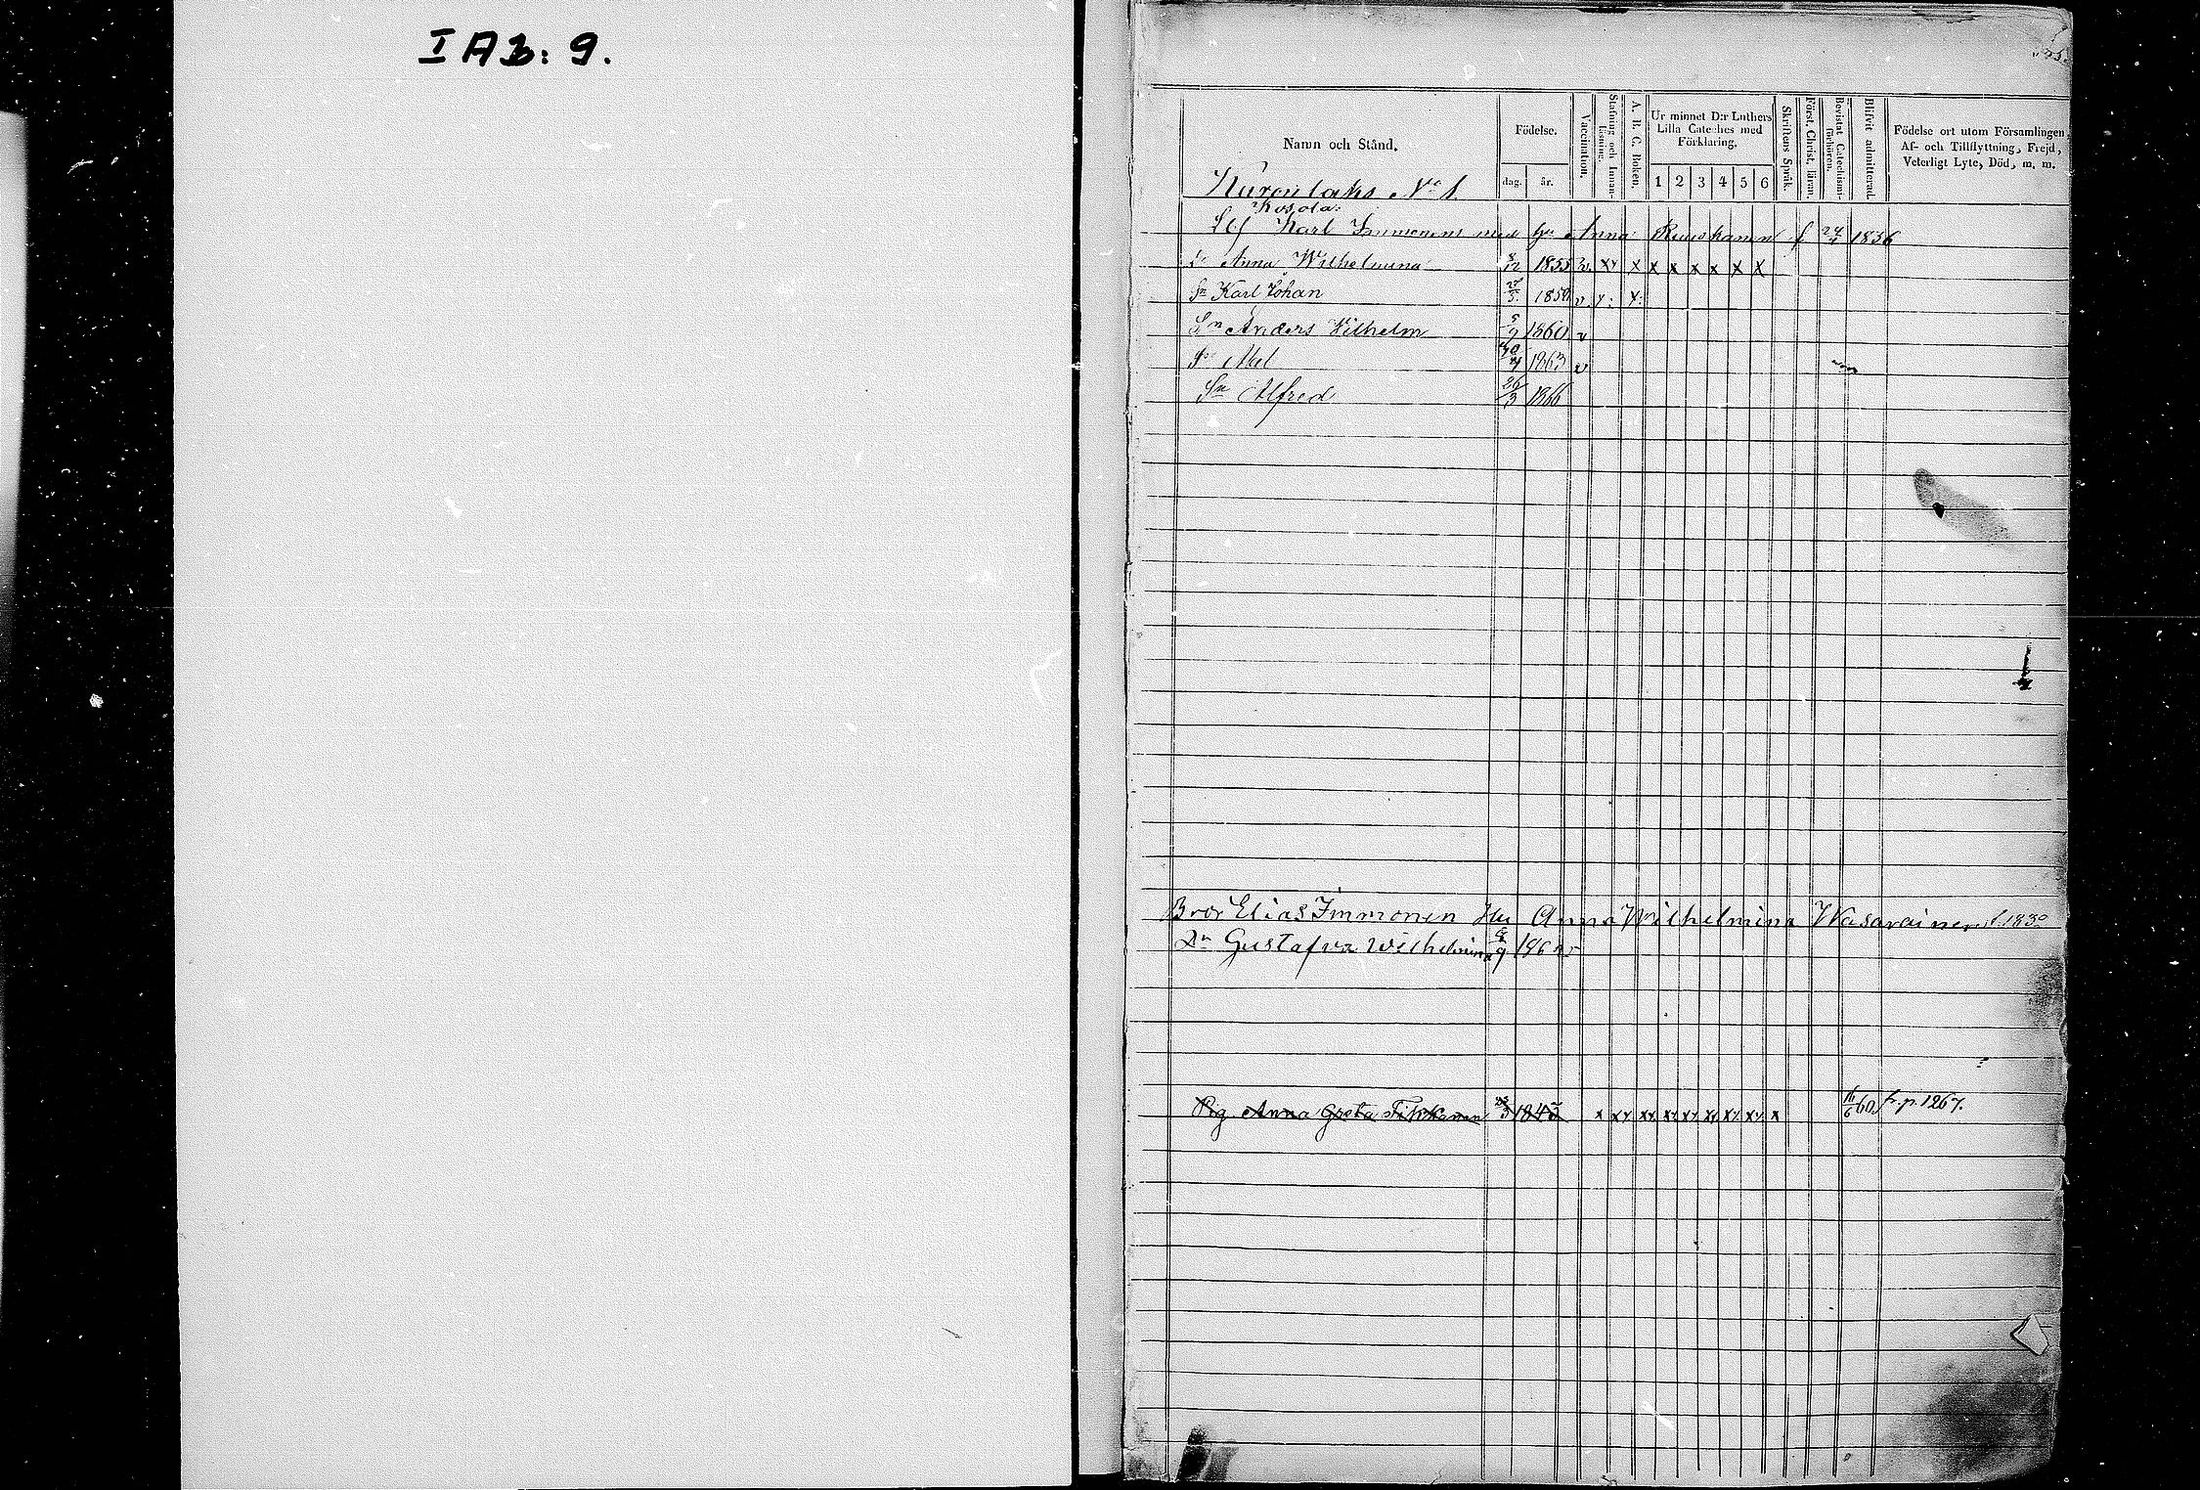 I A B: 9.
Namn och Stånd.
Födelse.
dag.
år.
Vaccination.
Stafning och Innan-
läsning.
A. B. C. Boken.
Ur minnet D:r Luthers
Lilla Cateches med
Förklaring.
1 2 3 4 5 6
Skriftens Språk.
Först. Christ. läran.
Bevistat Catechismi-
förhören.
Blifvit admitterad.
Födelse ort utom Församlingen,
Af- och Tillflyttning, Frejd,
Veterligt Lyte, Död, m. m.
N:o 1
Karl Immonens med Hu Anna f 1836
Anna Wilhelmina 8/12 1855 v. xx x x x x x x x
Sn Karl Johan 1858 v x: x:
Sn Anders Vilhelm 1860 v
1863 v
Sn Alfred 26/3 1866
Bror Elias Immonen Hu Anna Wilhelmina Wasarainen f. 1830
Dr Gustafva Wilhelmina
Pig. Anna Greta 184 x xx xx xx xx xx xx xx x 16/6 60 fr. p. 1267.